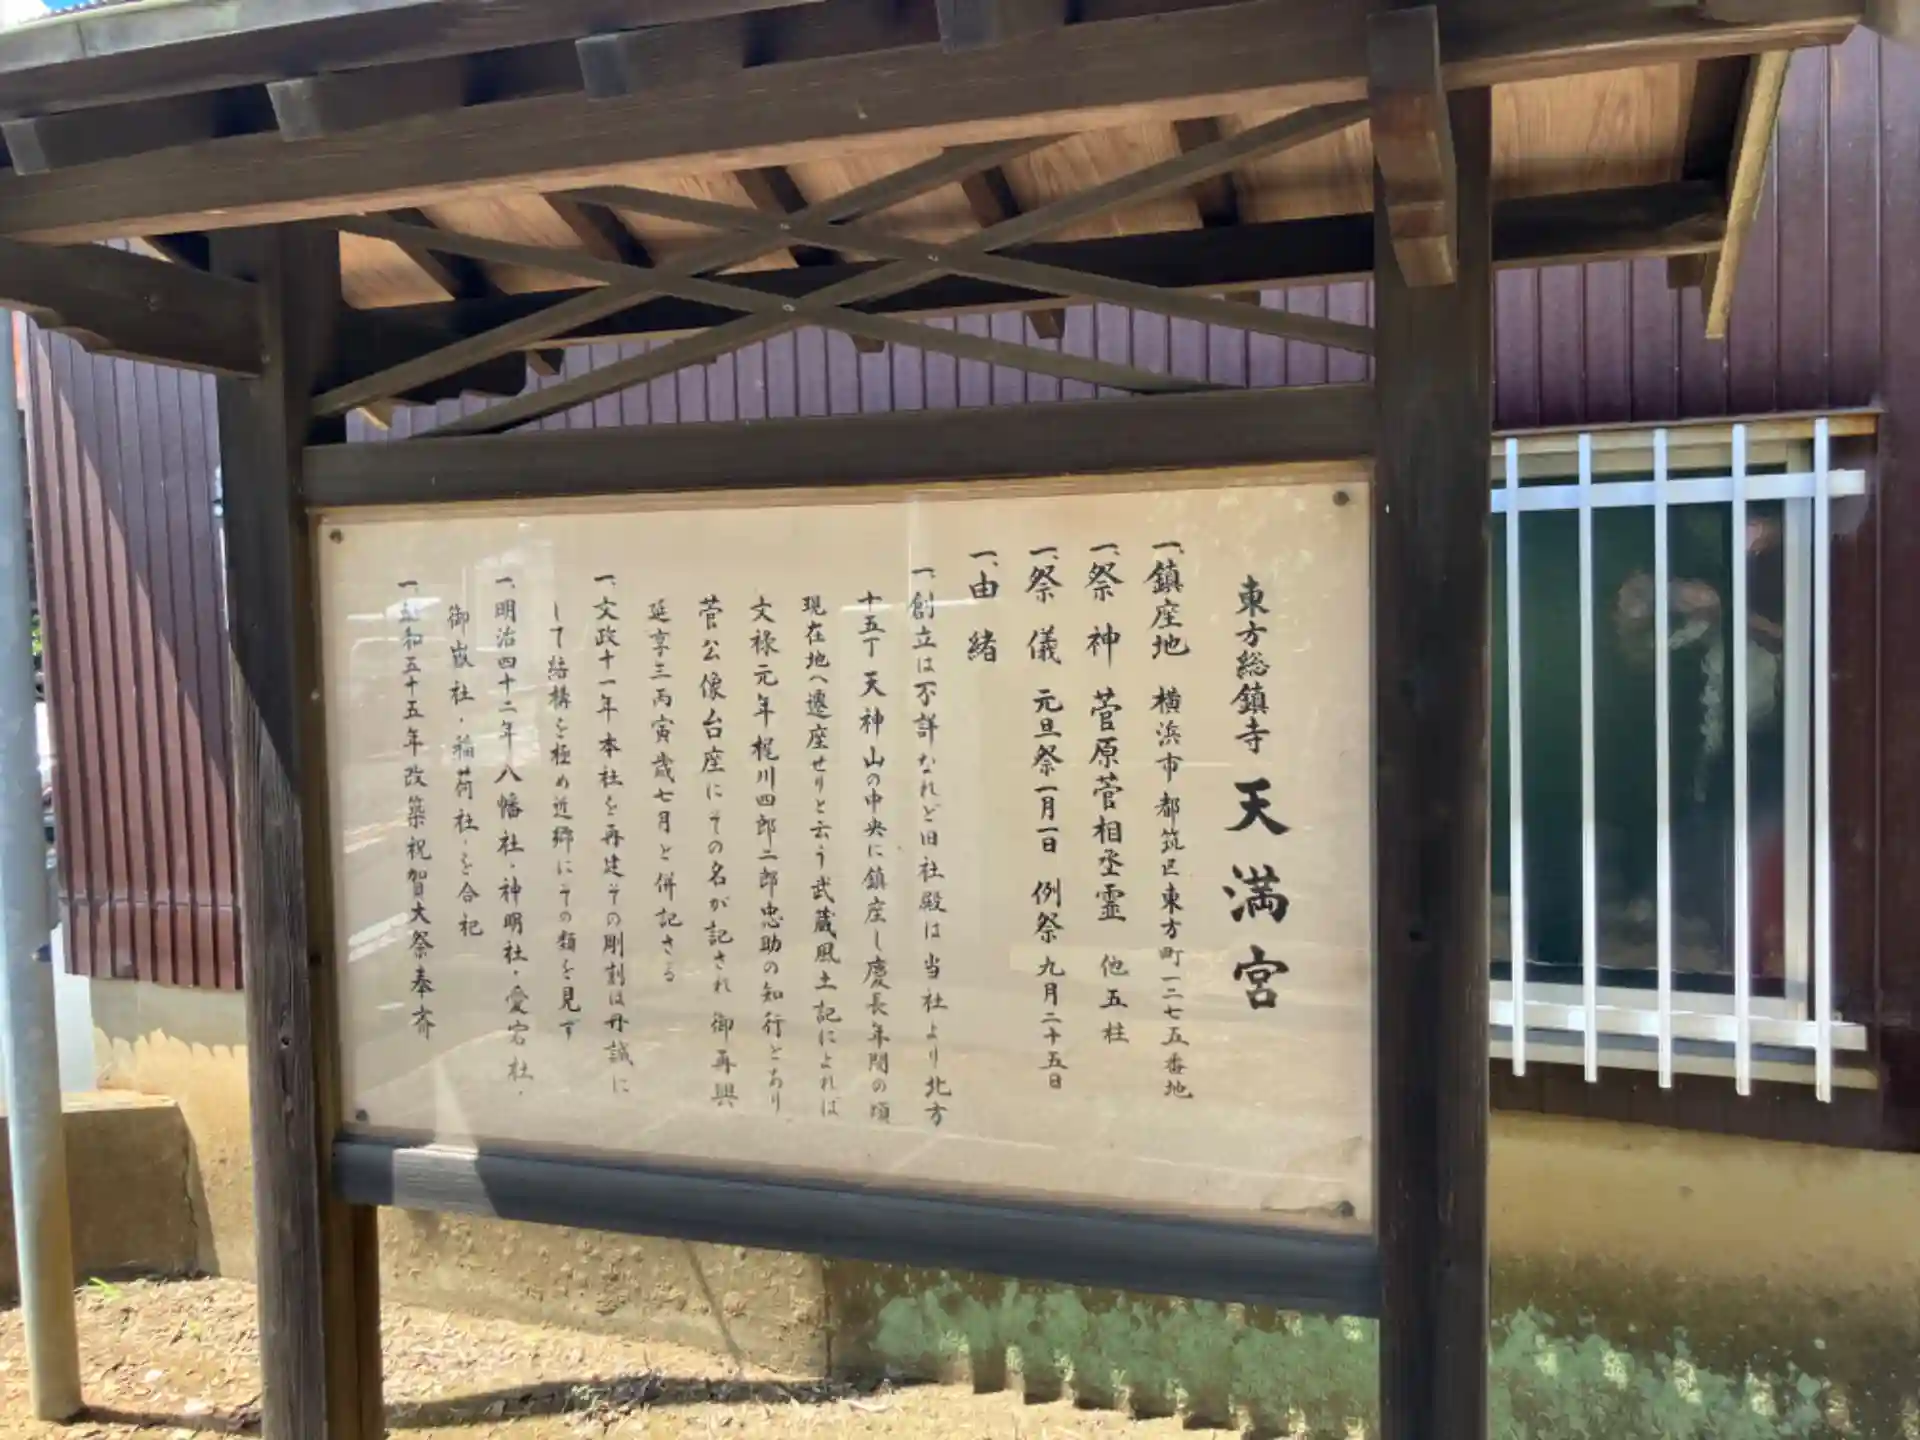 東方総鎮寺 天満宮
一、鎮座地 横浜市都筑区東方町一二七五番地
一、祭神 菅原菅相丞霊 他五柱
一、祭儀 元旦祭一月一日 例祭九月二十五日
一、由緒
一、創立は不詳なれど旧社殿は当社より北方
十五丁天神山の中央に鎮座し慶長年間の頃
現在地へ遷座せりと云う武蔵風土記によれば
文禄元年梶川四郎二郎忠助の知行とあり
菅公像台座にその名が記され御再興
延享三丙寅歳七月と併記さる
一、文政十一年本社を再建その彫刻は丹誠に
して結構を極め近郷にその類を見ず
一、明治四十二年八幡社・神明社・愛宕社・
御嶽社・稲荷社・を合祀
一、昭和五十五年改築祝賀大祭奉斎